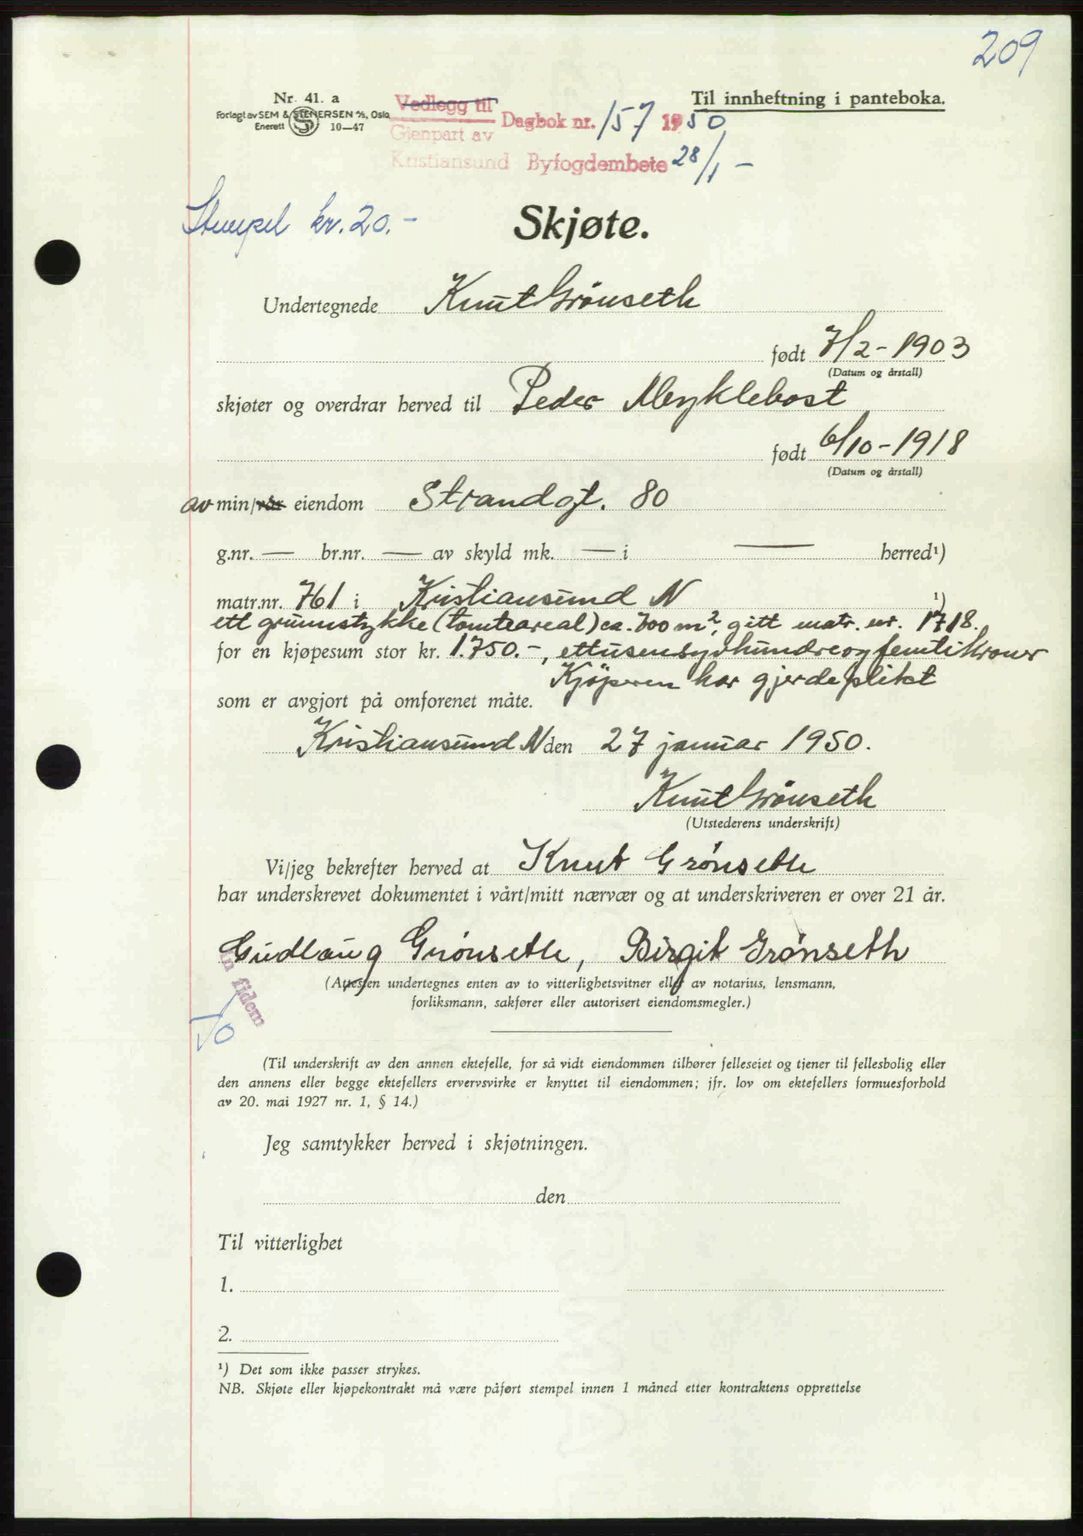 209
Nr. 41. a
Forlagt av SEM & STENERSEN A/S, Oslo
Enerett S 10—47
Vedlegg til
Gjenpart av
Dagbok nr. 157 1950
Kristiansund Byfogdembete 28/1 –
Til innheftning i panteboka.
Stempel kr. 20.–
Skjøte.
Undertegnede Knut Grönseth
født 7/2 – 1903
(Datum og årstall)
skjøter og overdrar herved til Peder Myklebost
født 6/10 – 1918
(Datum og årstall)
av min/vår eiendom Strandgt. 80
g.nr. — br.nr. — av skyld mk. — i — herred¹)
matr.nr. 761 i Kristiansund N ¹)
ett grunnstykke (tomteareal) ca. 700 m², gitt matr. nr. 1718.
for en kjøpesum stor kr. 1.750.–, ettusensyvhundreogfemti kroner
Kjöperen har gjerdeplikt
som er avgjort på omforenet måte.
Kristiansund N den 27 januar 1950.
Knut Grönseth
(Utstederens underskrift)
Vi/jeg bekrefter herved at Knut Grønseth
har underskrevet dokumentet i vårt/mitt nærvær og at underskriveren er over 21 år.
Gudlaug Grønseth, Birgit Grønseth
(Attesten undertegnes enten av to vitterlighetsvitner eller av notarius, lensmann,
forliksmann, sakfører eller autorisert eiendomsmegler.)
In fidem
(Til underskrift av den annen ektefelle, for så vidt eiendommen tilhører felleseiet og tjener til fellesbolig eller
den annens eller begge ektefellers ervervsvirke er knyttet til eiendommen; jfr. lov om ektefellers formuesforhold
av 20. mai 1927 nr. 1, § 14.)
Jeg samtykker herved i skjøtningen.
den
Til vitterlighet
1.
2.
¹) Det som ikke passer strykes.
NB. Skjøte eller kjøpekontrakt må være påført stempel innen 1 måned etter kontraktens opprettelse